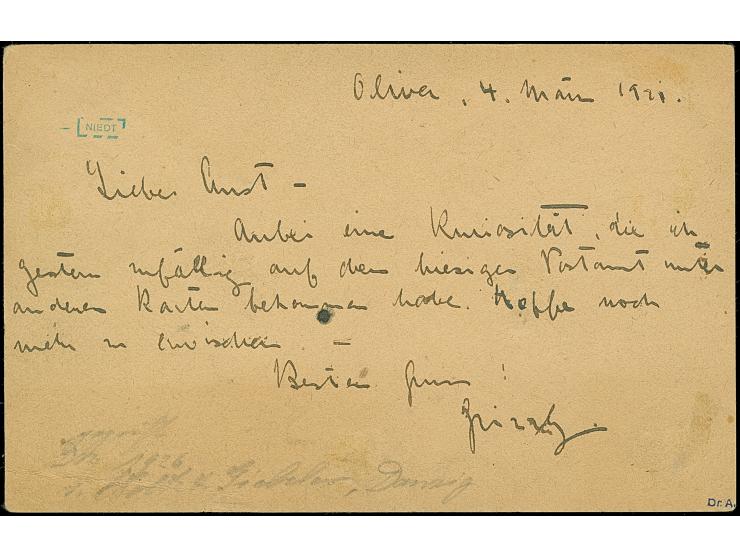 Oliva, 4. März 1921.
NIEDT
Lieber Ernst –
Anbei eine Kuriosität, die ich
gestern zufällig auf dem hiesigen Postamt unter
anderen Karten bekommen habe. Hoffe noch
mehr zu erwischen. –
Besten Gruss!
Dr. A.
& Giebeler, Danzig